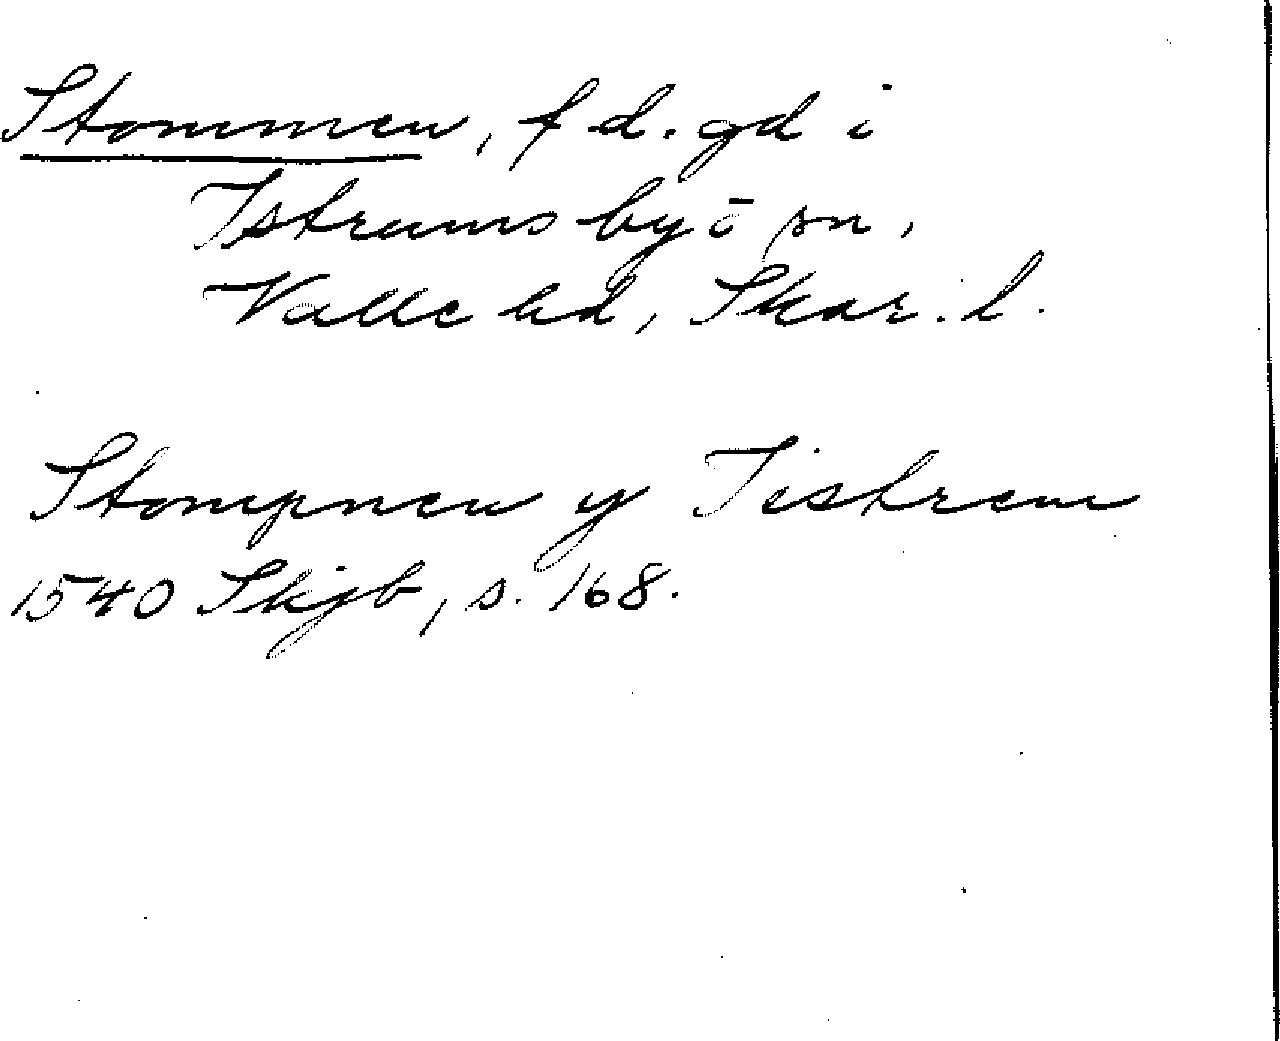 Stommen, f d. gd i
Istrums by o sn,
Valle hd, Skar. l.
Stompnen y Iistrem
1540 Skjb, s. 168.